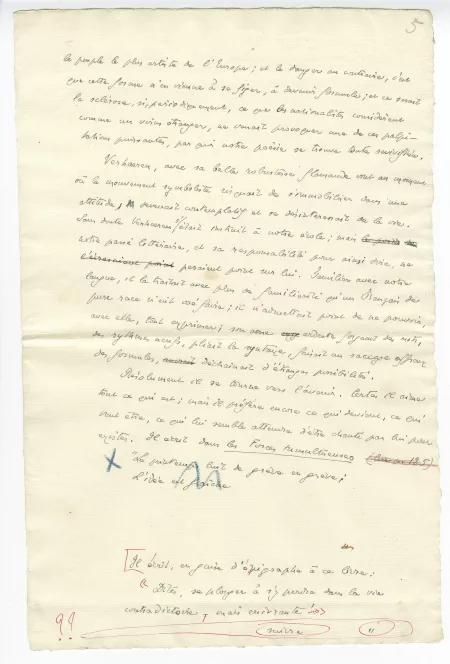 5
le peuple le plus artiste de l'Europe ; et le danger au contraire, c'est
que cette forme n'en vienne à se figer, à devenir formule ; et ce serait
la sclérose, si, périodiquement, ce que les nationalistes considèrent
comme un virus étranger, ne venait provoquer une de ces palpi-
tations puissantes, par quoi notre poésie se trouve toute revivifiée.
Verhaeren, avec sa belle robustesse flamande vint au moment
où le mouvement symboliste risquait de s'immobiliser dans une
attitude, devenait contemplatif et se désintéressait de la vie.
Sans doute Verhaeren s'était instruit à notre école ; mais
notre passé littéraire, et sa responsabilité pour ainsi dire, ne
pesaient point sur lui. Familier avec notre
langue, il la traitait avec plus de familiarité qu'un Français de
pure race n'eût osé faire ; il n'admettait point de ne pouvoir,
avec elle, tout exprimer ; son ardente forgeait des mots,
des rythmes neufs, pliait la syntaxe, faisait un saccage
des formules, déchaînait d'étranges possibilités.
Résolument il se tourne vers l'avenir. Certes il aime
tout ce qui est ; mais il préfère encore ce qui devient, ce qui
veut être, ce qui lui semble attendre d'être chanté par lui pour
exister. Il écrit dans les Forces tumultueuses
"Le printemps luit de grève en grève ;
L'idée est fraîche
[Il écrit, en guise d'épigraphe à ce livre :
" Dites, se plonger à s'y perdre dans la vie
contradictoire, mais enivrante !"
suivre
"
??